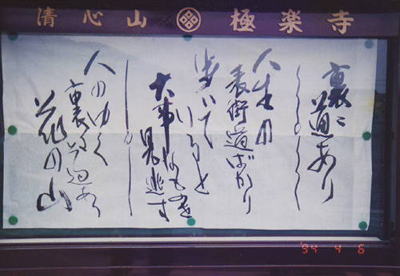 清心山 極楽寺
裏に
道あり
人生の
表街道ばかり
歩いて
いると
大事なものを
見逃す
人のゆく
裏に道あり
花の山
'94 4 6